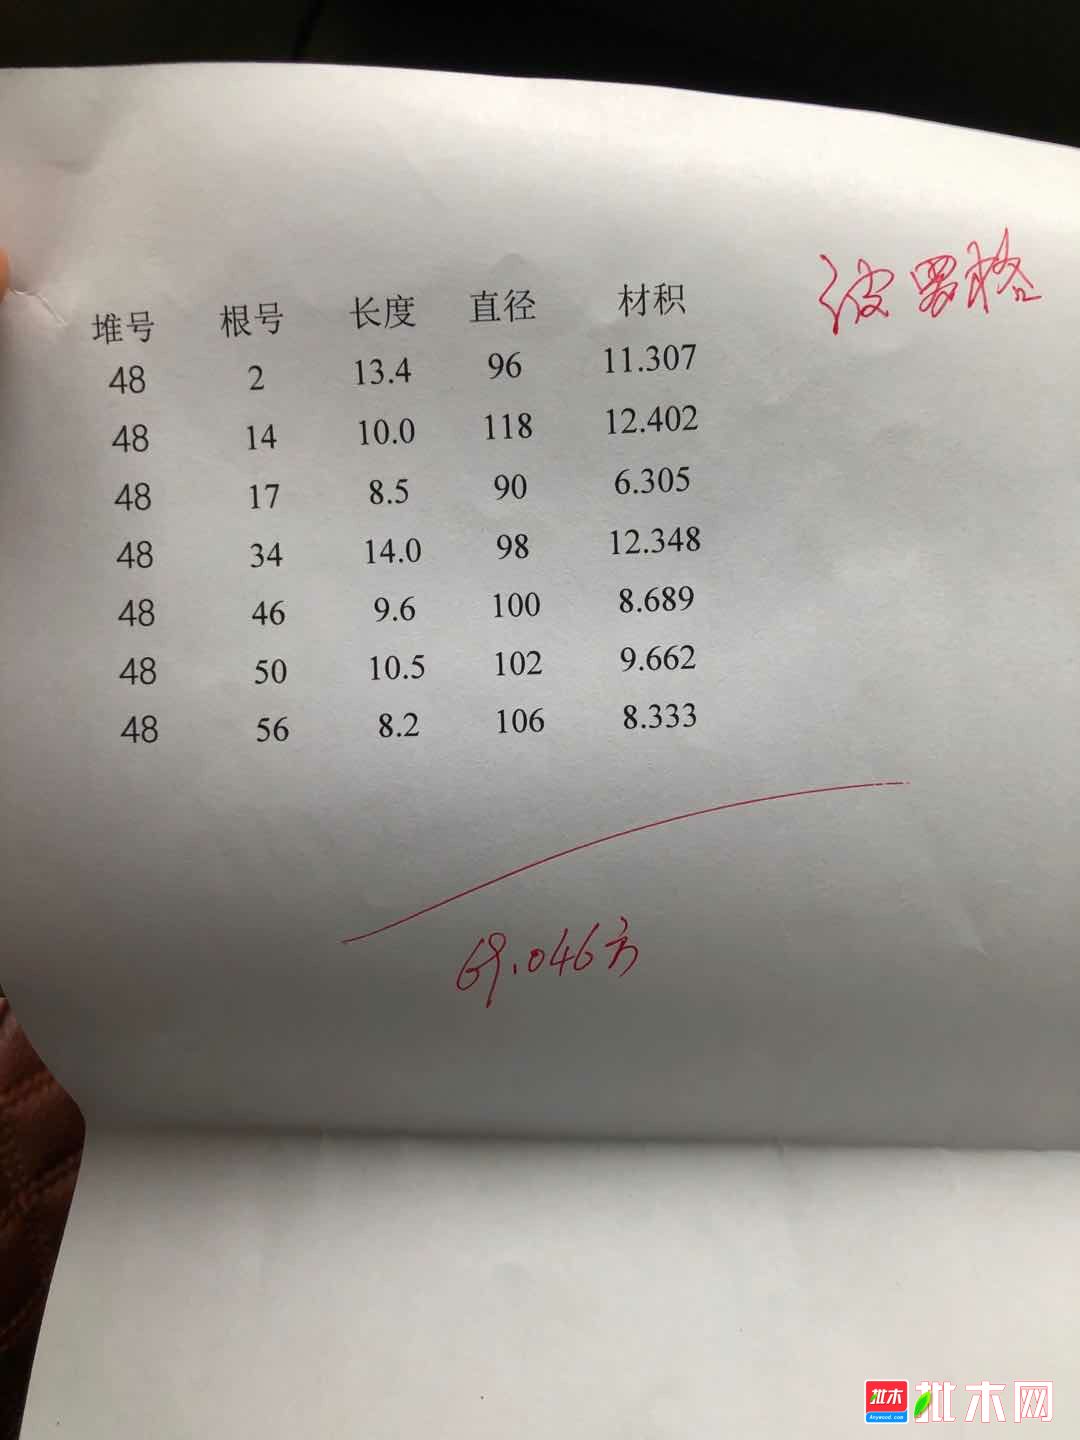 波罗格
堆号 根号 长度 直径 材积
48 2 13.4 96 11.307
48 14 10.0 118 12.402
48 17 8.5 90 6.305
48 34 14.0 98 12.348
48 46 9.6 100 8.689
48 50 10.5 102 9.662
48 56 8.2 106 8.333
69.046方
批木 批木网
Anywood.com